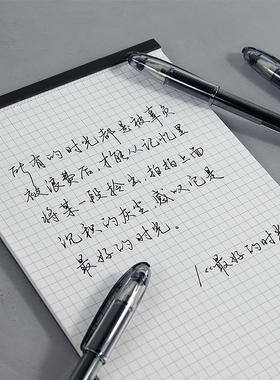 所有的时光都是被辜负
被浪费后，才能从记忆里
将某一段拎出，拍拍上面
沉积的灰尘，感叹它是
最好的时光。
/《最好的时光